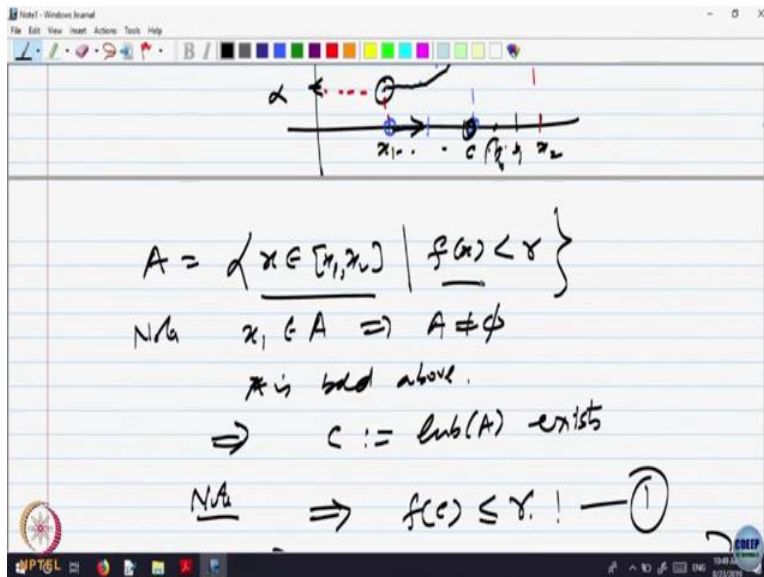 Note1 - Windows Journal
File Edit View Insert Actions Tools Help
B I
α
x₁ c x₂
A = { x ∈ [x₁, x₂] | f(x) < γ }
Note x₁ ∈ A ⇒ A ≠ ϕ
A is bdd above.
⇒ c := lub(A) exists
Note ⇒ f(c) ≤ γ. ! — ①
NPTEL
CDEEP
ENG
8/23/2019